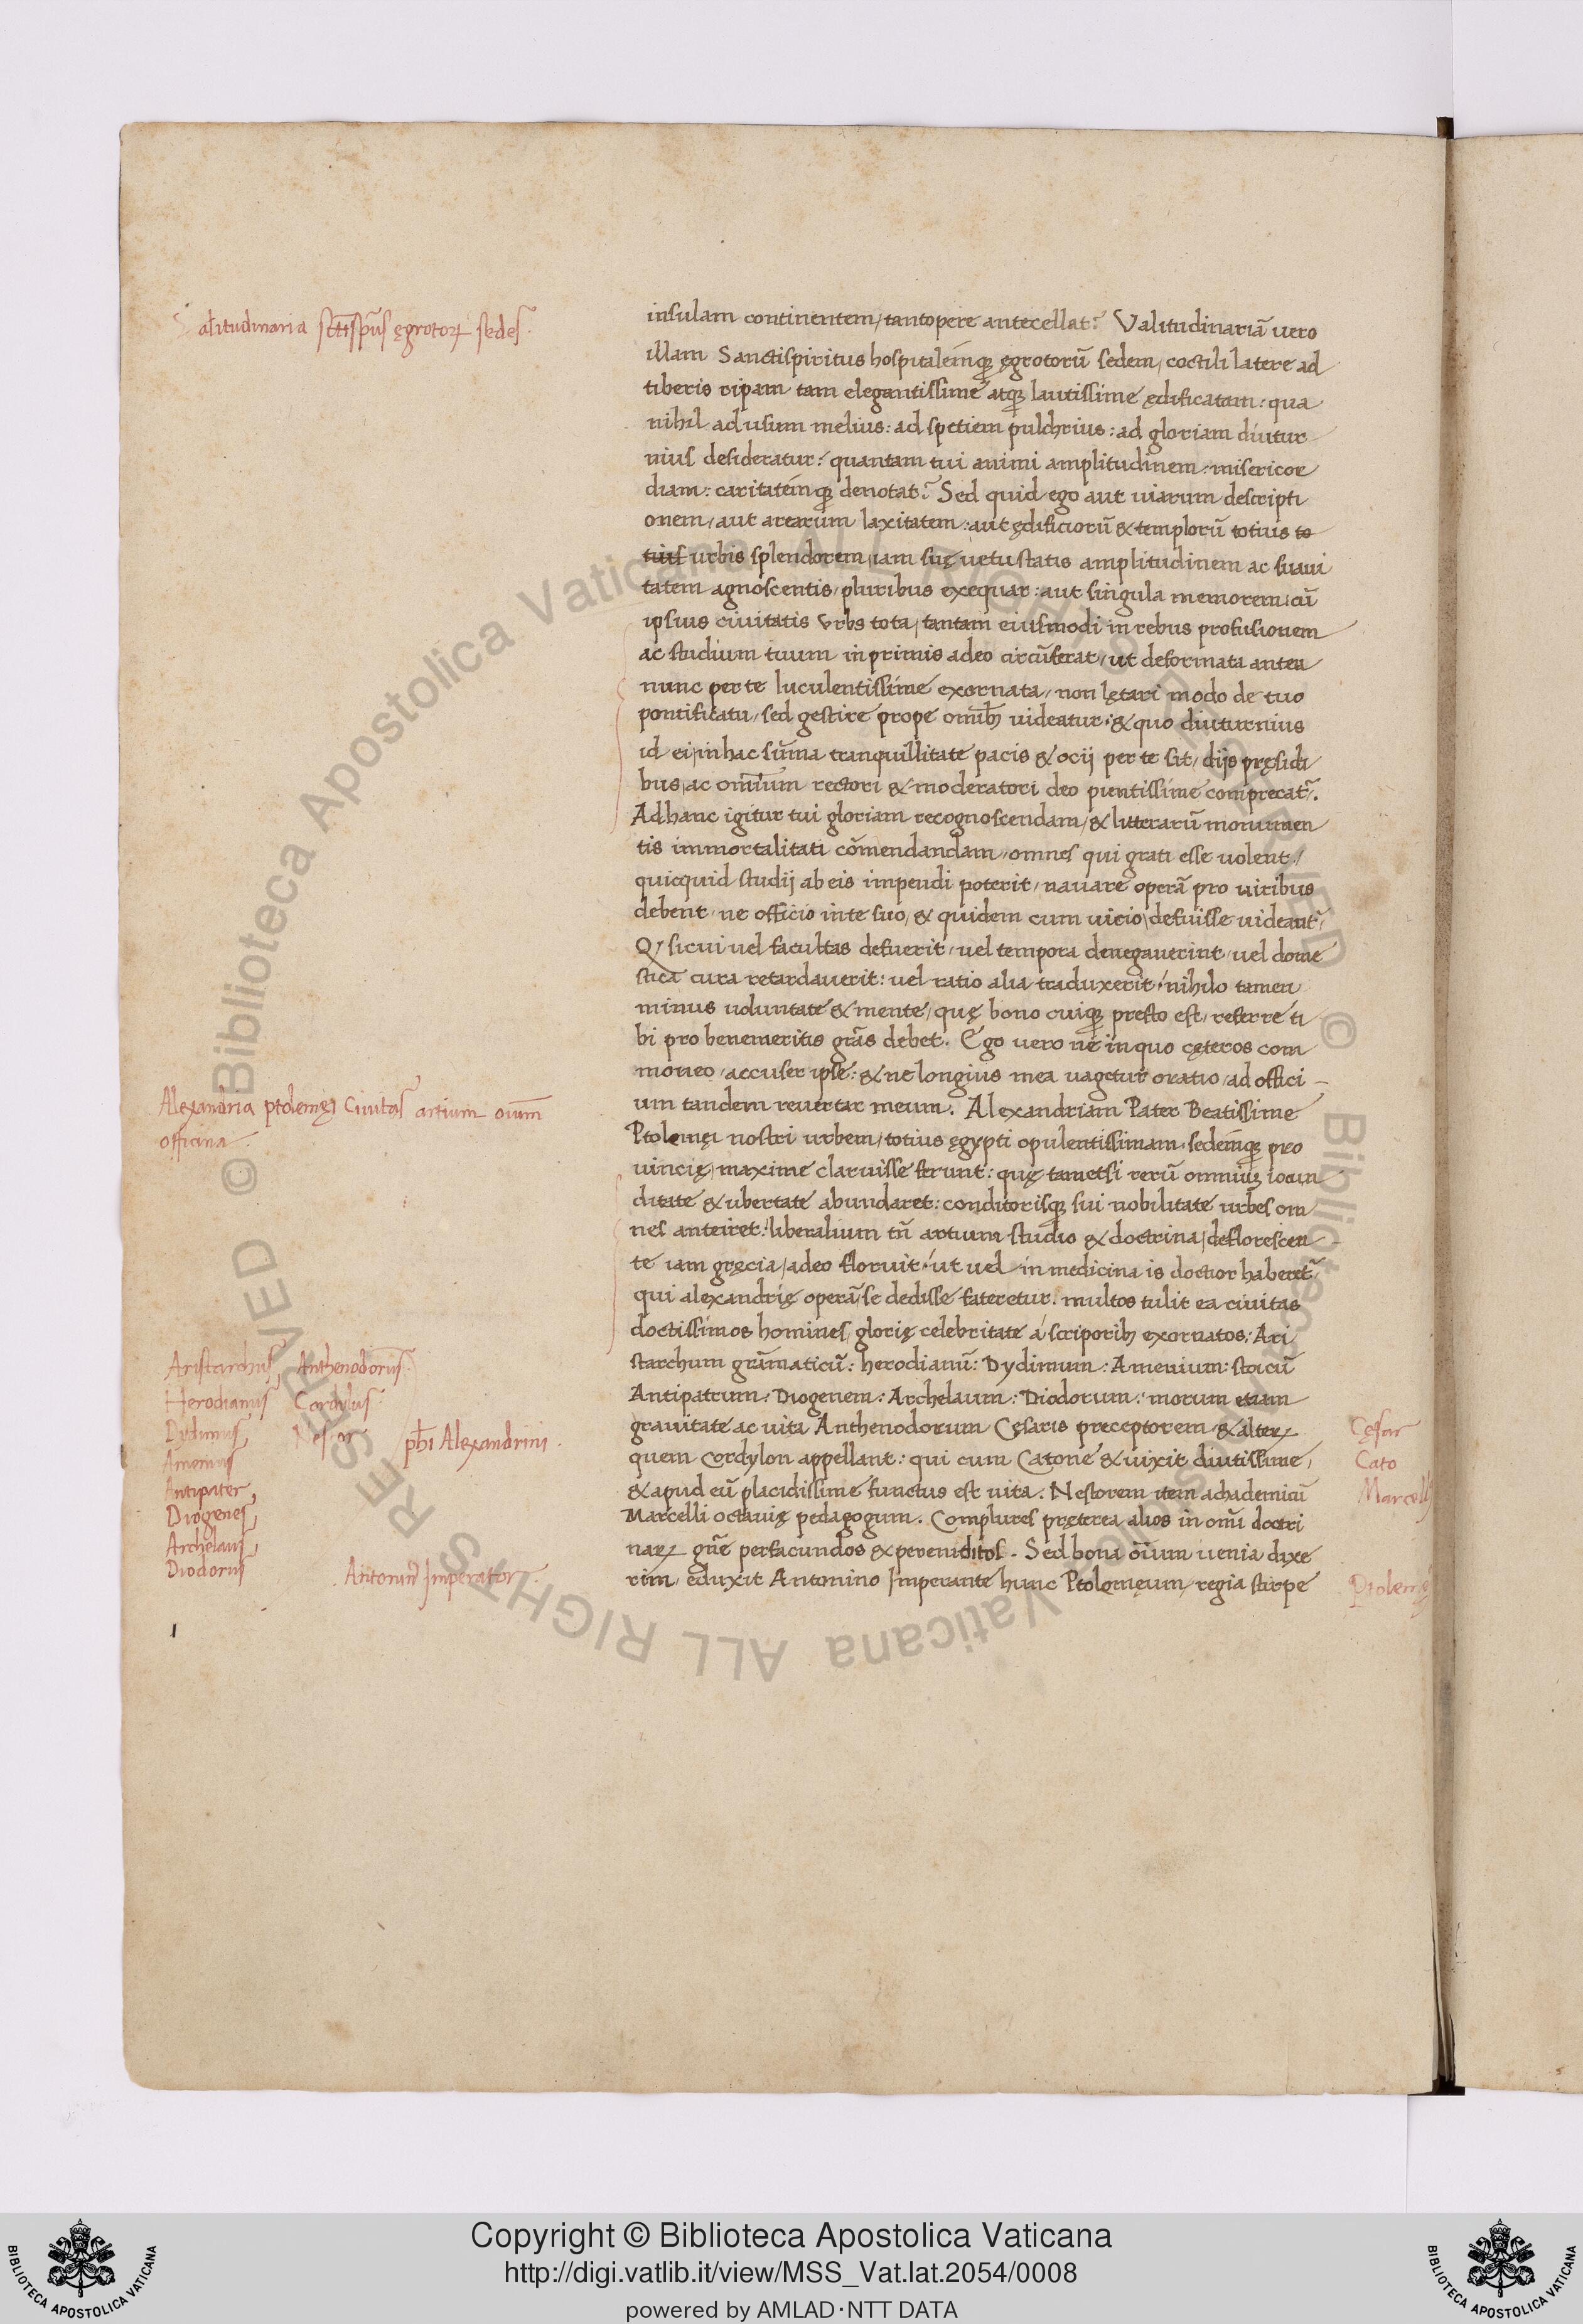 insulam continentem, tantopere antecellat? Valitudinariā vero
illam Sanctispiritus hospitalémq; ęgrotorū sedem, coctili latere ad
tiberis ripam tam elegantissime atq; lautissime ędificatam: qua
nihil ad usum melius: ad spetiem pulchrius: ad gloriam diutur
nius desideratur: quantam tui animi amplitudinem: misericor
diam: caritatémq; denotat? Sed quid ego aut uiarum descripti
onem, aut arearum laxitatem: aut ędificiorū & templorū totius to
tius urbis splendorem, iam suę uetustatis amplitudinem ac suaui
tatem agnoscentis, pluribus exequar: aut singula memorem, cū
ipsius ciuitatis vrbs tota, tantam eiusmodi in rebus profusionem
ac studium tuum in primis adeo circūferat, ut deformata antea
nunc per te luculentissime exornata, non lętari modo de tuo
pontificatu, sed gestire prope omīb; uideatur: & quo diuturnius
id ei, in hac sūma tranquillitate pacis & ocij per te sit, dijs pręsidi
bus, ac omīum rectori & moderatori deo puntissime comprecat̃.
Ad hanc igitur tui gloriam recognoscendam, & litterarū monumen
tis immortalitati cōmendandam, omnes qui grati esse uolent,
quicquid studij ab eis impendi poterit, nauare operā pro uiribus
debent, ne officio in te suo, & quidem cum uicio, defuisse uideant̃,
Q, si cui uel facultas defuerit, uel tempora denegauerint, uel dome
stica cura retardauerit: uel ratio alia traduxerit: nihilo tamen
minus uoluntate & mente, quę bono cuiq; presto est, referre ti
bi pro benemeritis grās debet. Ego uero ne in quo cęteros com
moueo, accuser ipse: & ne longius mea uagetur oratio, ad offici-
um tandem reuertar meum. Alexandriam Pater Beatissime
Ptolemęi nostri urbem, totius ęgypti opulentissimam, sedémq; pro
uincię, maxime claruisse ferunt: quę tametsi rerū omniuȝ iocun
ditate & ubertate abundaret: conditorisq; sui nobilitate urbes om
nes anteiret: liberalium tñ artium studio & doctrina, deflorescen-
te iam gręcia, adeo floruit: ut uel in medicina is doctior haberet̃
qui alexandrię operā, se dedisse fateretur. multos tulit ea ciuitas
doctissimos homines, glorię celebritate á scriptorib; exornatos: Ari
starchum grāmaticū: herodianū: Dydimum: Amenium: stoicū
Antipatrum: Diogenem: Archelaum: Diodorum: morum etiam
grauitate ac uita Anthenodorum Cęsaris preceptorem, & alteꝝ
quem Cordylon appellant: qui cum Catone & uixit diutissime,
& apud eū placidissime functus est uita. Nestorem item achademicū
Marcelli octauię pedagogum. Complures pręterea alios in omī doctri
naꝝ gñe perfacundos & pereruditos. Sed bona oīum uenia dixe
rim, eduxit Antonino Imperante hunc Ptolomęum, regia stirpe
alitudinaria sctisp̄us ęgrotoꝝ sedes.
Alexandria ptolemęi Ciuitas artium oīum
officina.
Aristarchus, Anthenodorus.
Herodianus Cordylus.
Dydimus, Nestor
Amonius
phī Alexandrini.
Antipater,
Diogenes,
Archelaus,
Diodorus
Antonin9 Imperator.
Cęsar
Cato
Marcell
Ptolemę
Copyright © Biblioteca Apostolica Vaticana
http://digi.vatlib.it/view/MSS_Vat.lat.2054/0008
powered by AMLAD·NTT DATA
BIBLIOTECA APOSTOLICA VATICANA
BIBLIOTECA APOSTOLICA VATICANA
© Biblioteca Apostolica Vaticana ALL RIGHTS RESERVED
© Biblioteca Apostolica Vaticana ALL RIGHTS RESERVED